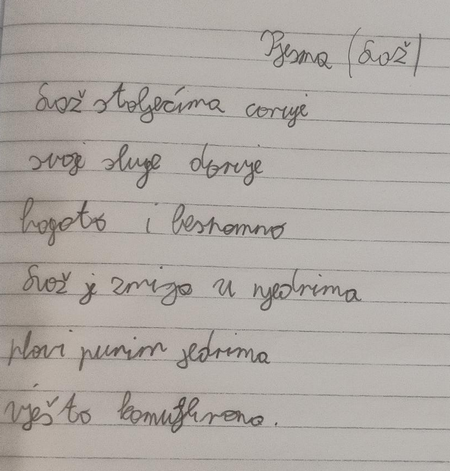 Pjesma (Laž)
Laž stoljećima caruje
svoje sluge daruje
bogato i besramno
Laž je zmija u njedrima
plovi punim jedrima
vješto kamuflirana.